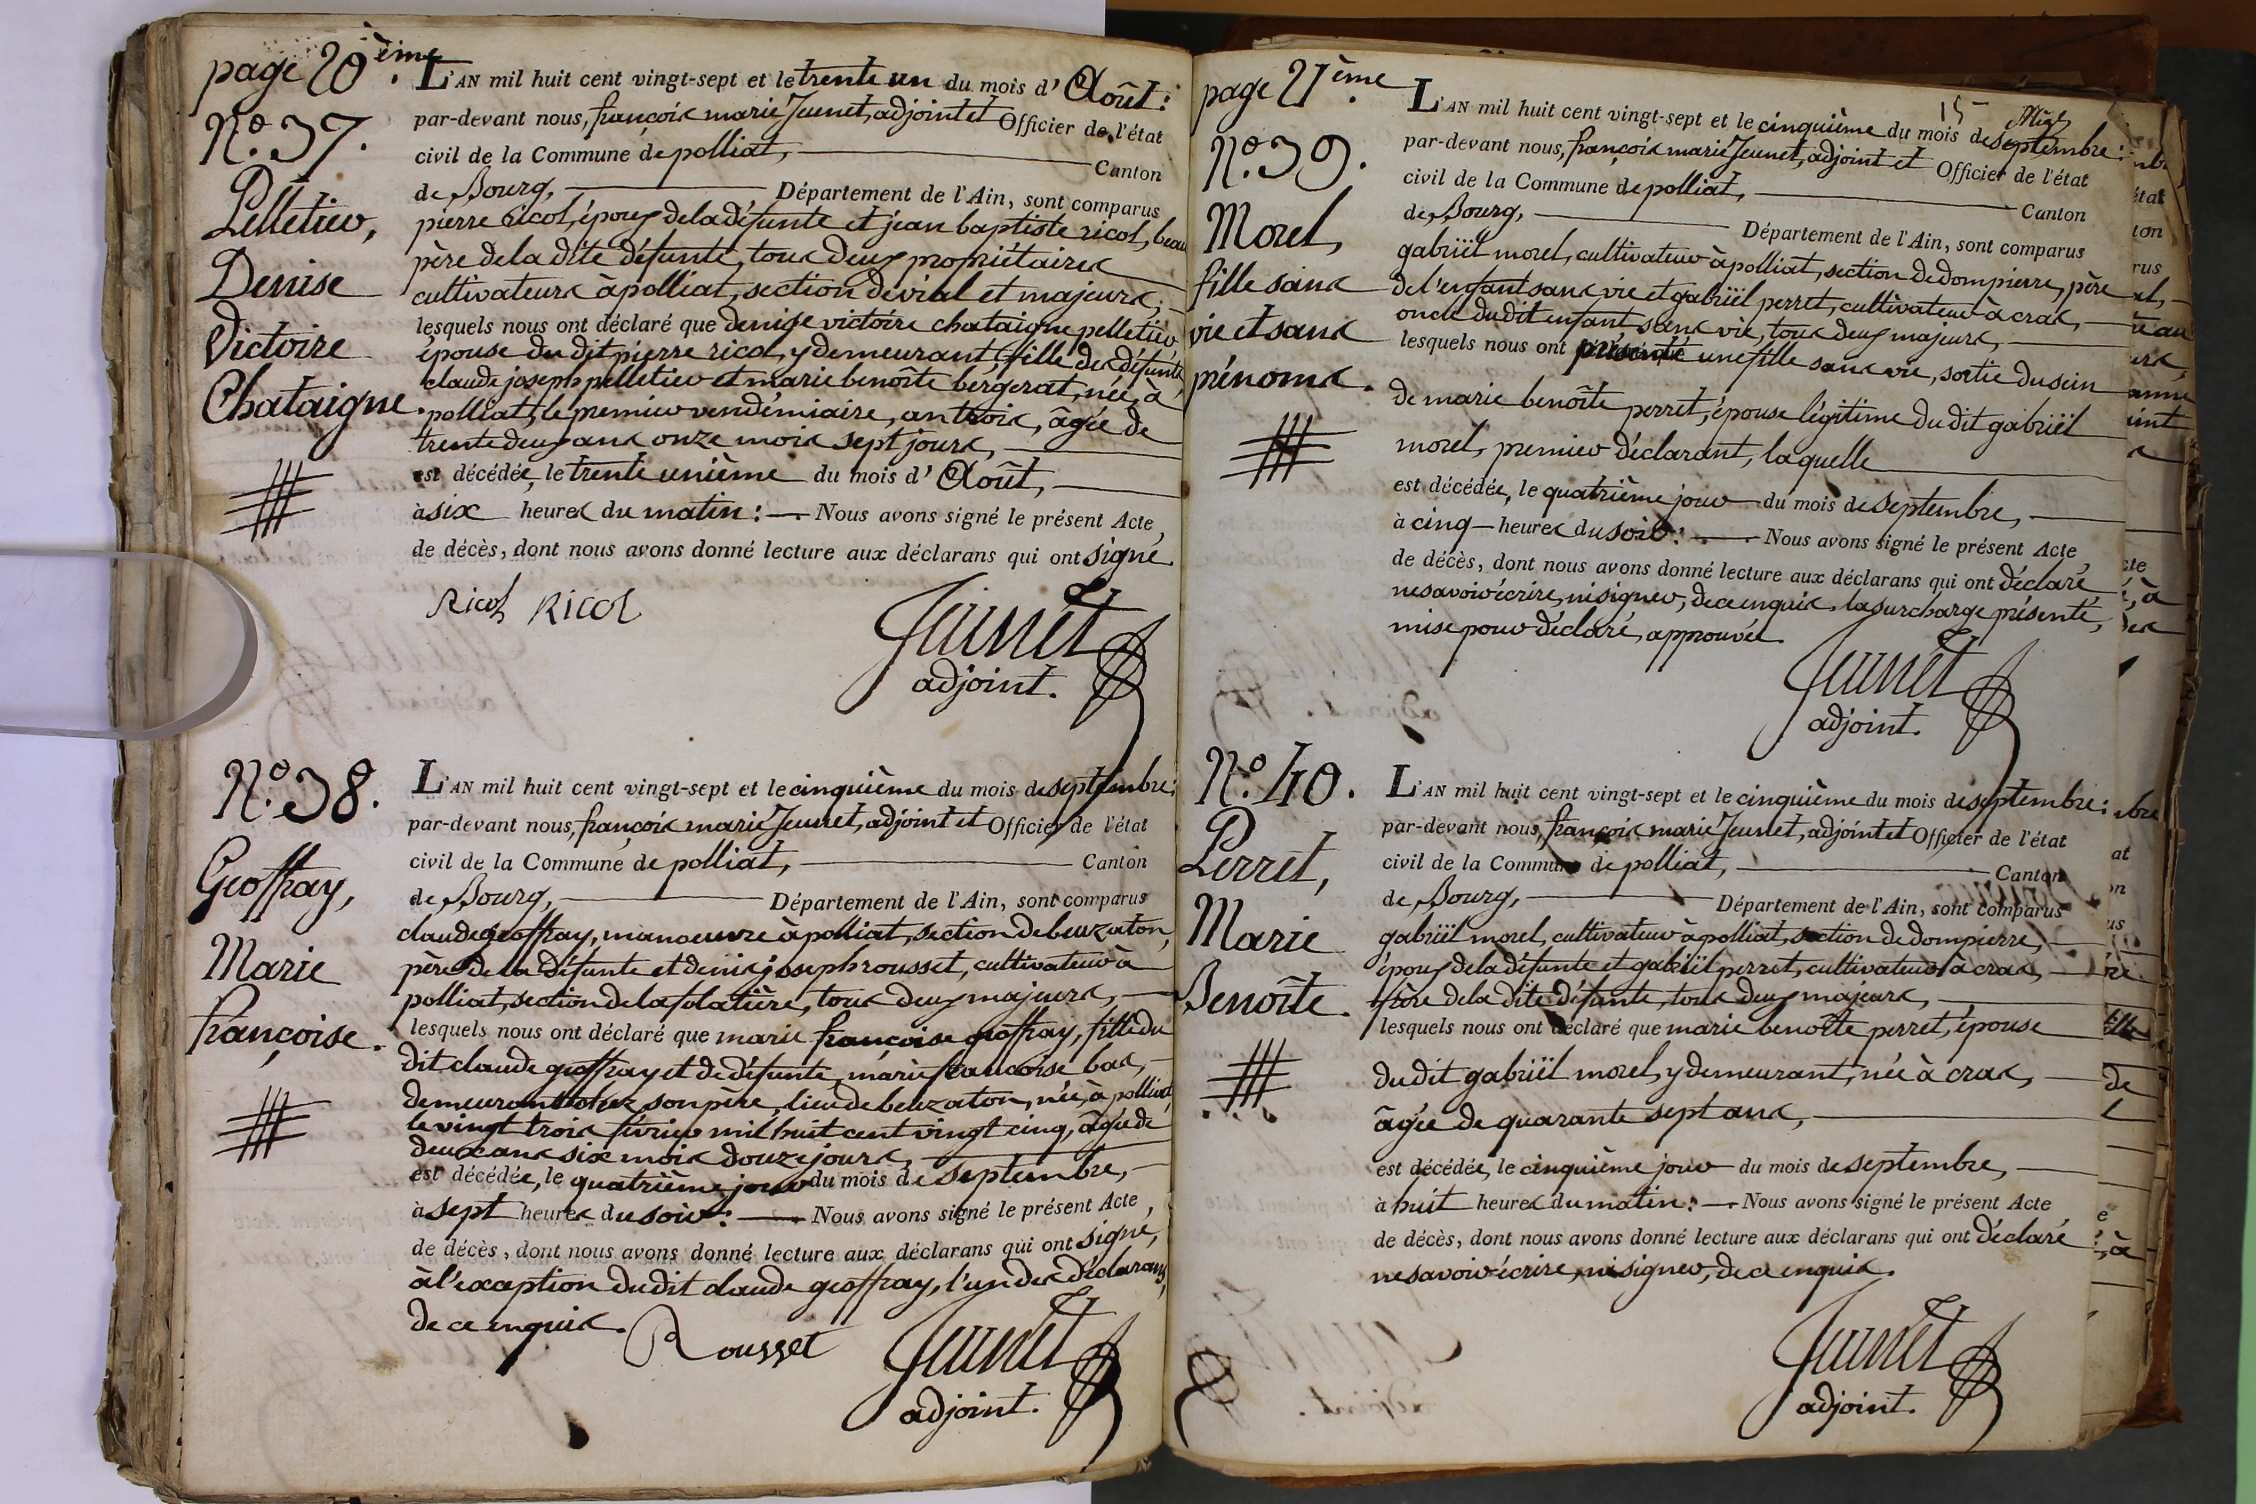 page 20ème.
N.o 37.
Pelletier,
Denise
Victoire
Chataigne.
L'AN mil huit cent vingt-sept et le trente un du mois d'Août:
par-devant nous, françois marie Jeunet, adjoint et Officier de l'état
civil de la Commune de polliat, Canton
de Bourg, Département de l'Ain, sont comparus
pierre ricol, époux de la défunte et jean baptiste ricol, beau
père de la dite défunte, tous deux propriétaires
cultivateurs à polliat, section de vial et majeurs,
lesquels nous ont déclaré que denise victoire chataigne pelletier
épouse du dit pierre ricol, y demeurant, fille des défunts
claude joseph pelletier et marie benoîte bergerat, née, à
polliat, le premier vendémiaire, an trois, âgée de
trente deux ans onze mois sept jours,
est décédée, le trente unième du mois d'Août,
à six heures du matin: Nous avons signé le présent Acte
de décès, dont nous avons donné lecture aux déclarans qui ont signé.
Ricol Ricol
Jeunet
adjoint.
N.o 38.
Geoffray,
Marie
françoise.
L'AN mil huit cent vingt-sept et le cinquième du mois de septembre:
par-devant nous, françois marie Jeunet, adjoint et Officier de l'état
civil de la Commune de polliat, Canton
de Bourg, Département de l'Ain, sont comparus
claude geoffray, manoeuvre à polliat, section de beuzaton,
père de la défunte et denis joseph rousset, cultivateur à
polliat, section de la folatière, tous deux majeurs,
lesquels nous ont déclaré que marie françoise geoffray, fille du
dit claude geoffray et de défunte marie francoise bas,
demeurant chez son père, lieu de beuzaton, née, à polliat,
le vingt trois février mil huit cent vingt cinq, âgée de
deux ans six mois douze jours,
est décédée, le quatrième jour du mois de septembre,
à sept heures du soir: Nous avons signé le présent Acte
de décès, dont nous avons donné lecture aux déclarans qui ont signé,
à l'exception du dit claude geoffray, l'un des déclarans,
de ce enquis.
Rousset
Jeunet
adjoint.
page 21ème.
15
N.o 39.
Morel,
fille sans
vie et sans
prénoms.
L'AN mil huit cent vingt-sept et le cinquième du mois de septembre:
par-devant nous, françois marie Jeunet, adjoint et Officier de l'état
civil de la Commune de polliat, Canton
de Bourg, Département de l'Ain, sont comparus
gabriël morel, cultivateur à polliat, section de dompierre, père
de l'enfant sans vie et gabriël perret, cultivateur à cras,
oncle du dit enfant sans vie, tous deux majeurs,
lesquels nous ont présenté une fille sans vie, sortie du sein
de marie benoîte perret, épouse légitime du dit gabriël
morel, premier déclarant, laquelle
est décédée, le quatrième jour du mois de septembre,
à cinq heures du soir: Nous avons signé le présent Acte
de décès, dont nous avons donné lecture aux déclarans qui ont déclaré
ne savoir écrire, ni signer, de ce enquis. la surcharge présenté,
mise pour déclaré, approuvée.
Jeunet
adjoint.
N.o 40.
Perret,
Marie
Benoîte.
L'AN mil huit cent vingt-sept et le cinquième du mois de septembre:
par-devant nous, françois marie Jeunet, adjoint et Officier de l'état
civil de la Commune de polliat, Canton
de Bourg, Département de l'Ain, sont comparus
gabriël morel, cultivateur à polliat, section de dompierre,
époux de la défunte et gabriël perret, cultivateur à cras,
frère de la dite défunte, tous deux majeurs,
lesquels nous ont déclaré que marie benoîte perret, épouse
du dit gabriël morel, y demeurant, née à cras,
âgée de quarante sept ans,
est décédée, le cinquième jour du mois de septembre,
à huit heures du matin: Nous avons signé le présent Acte
de décès, dont nous avons donné lecture aux déclarans qui ont déclaré
ne savoir écrire, ni signer, de ce enquis.
Jeunet
adjoint.